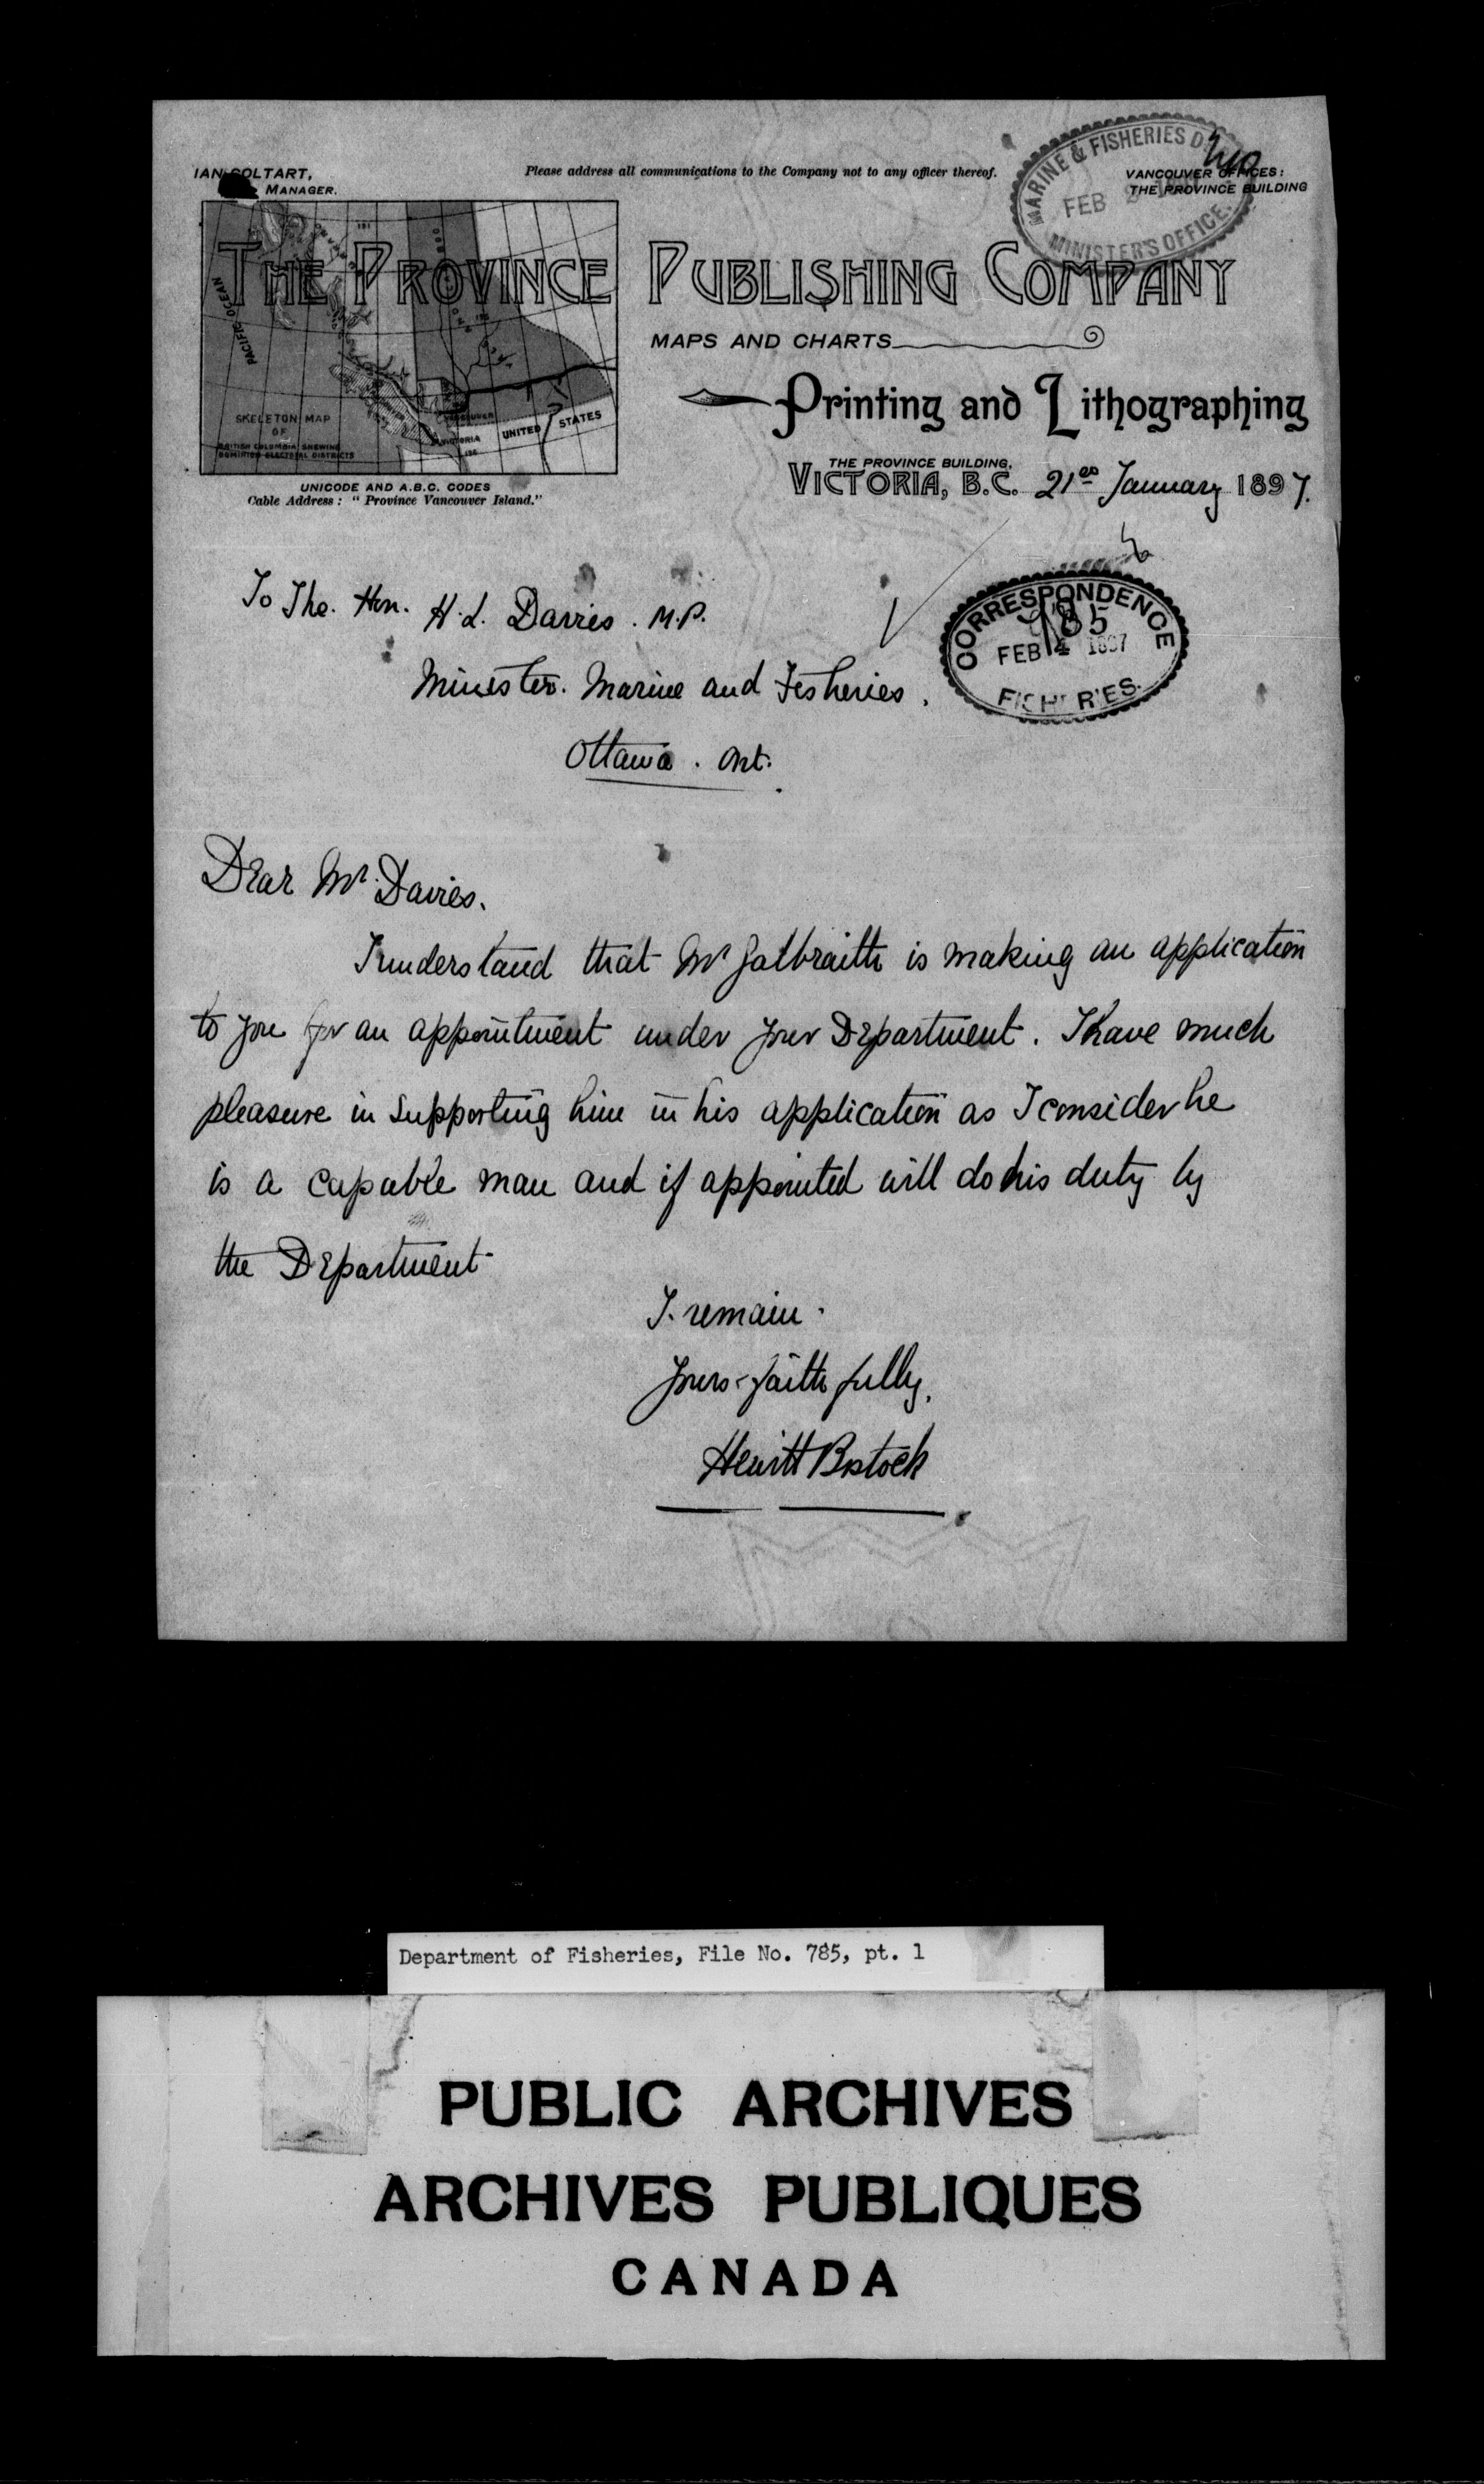 IAN COLTART,
MANAGER.
Please address all communications to the Company not to any officer thereof.
VANCOUVER OFFICES:
THE PROVINCE BUILDING
MARINE & FISHERIES
FEB
MINISTER'S OFFICE.
THE PROVINCE PUBLISHING COMPANY
MAPS AND CHARTS
Printing and Lithographing
PACIFIC OCEAN
SKELETON MAP
OF
BRITISH COLUMBIA SHEWING
DOMINION ELECTORAL DISTRICTS
VANCOUVER
VICTORIA
UNITED STATES
UNICODE AND A.B.C. CODES
Cable Address: "Province Vancouver Island."
THE PROVINCE BUILDING,
VICTORIA, B.C. 21st January 1897.
CORRESPONDENCE
785
FEB 4 1897
FISHERIES.
To The. Hon. H. L. Davies. M.P.
Minister. Marine and Fisheries.
Ottawa. Ont.
Dear Mr. Davies.
I understand that Mr Galbraith is making an application
to you for an appointment under your Department. I have much
pleasure in supporting him in his application as I consider he
is a capable man and if appointed will do his duty by
the Department
I. remain.
Yours faithfully,
Hewitt Bostock
Department of Fisheries, File No. 785, pt. 1
PUBLIC ARCHIVES
ARCHIVES PUBLIQUES
CANADA